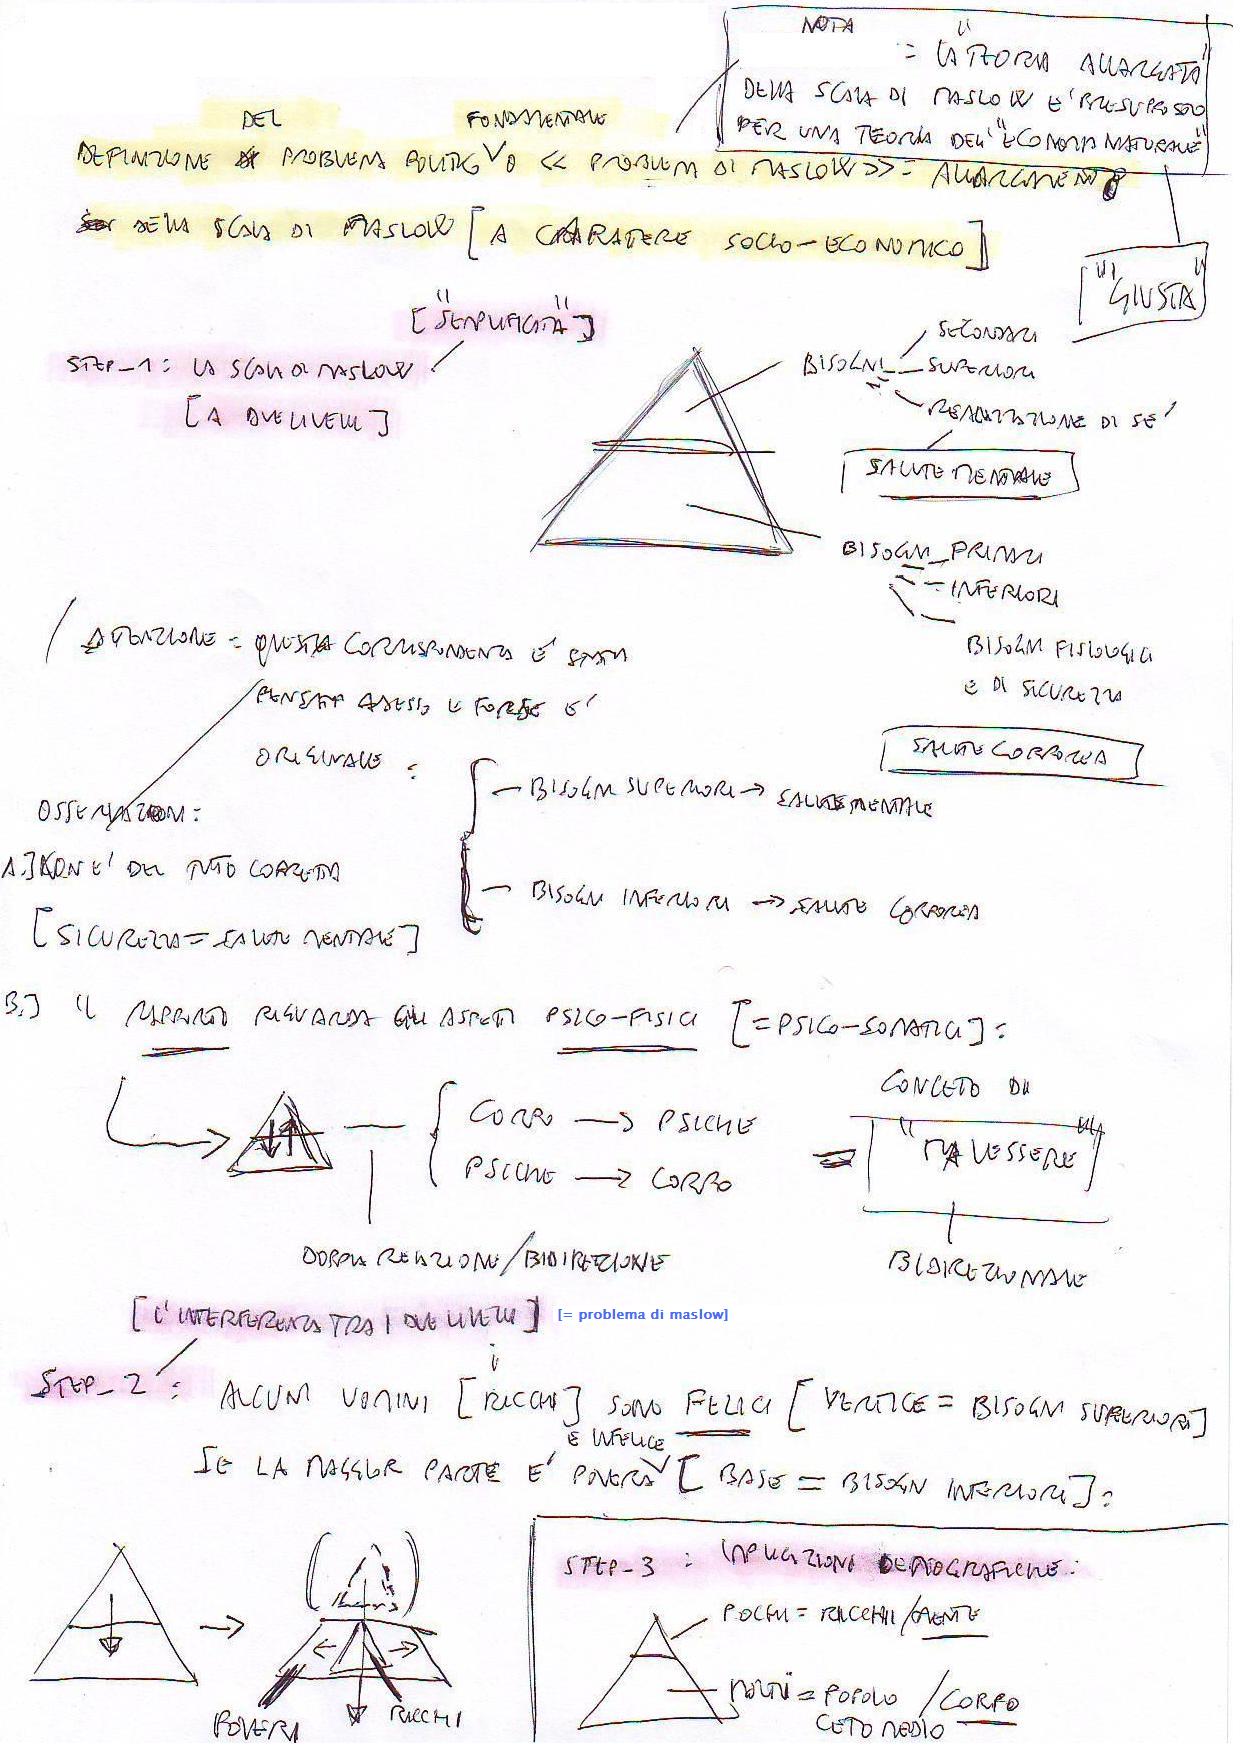 NOTA
= "LA TEORIA ALLARGATA"
DELLA SCALA DI MASLOW E' PRESUPPOSTO
PER UNA TEORIA DELL'"ECONOMIA NATURALE"
["GIUSTA"]
DEL FONDAMENTALE
DEFINIZIONE PROBLEMA POLITICO V O << PROBLEMA DI MASLOW >> = ALLARGAMENTO
DELLA SCALA DI MASLOW [A CARATTERE SOCIO-ECONOMICO]
["SEMPLIFICATA"]
STEP_1: LA SCALA DI MASLOW
[A DUE LIVELLI]
BISOGNI_ SECONDARI
_ SUPERIORI
REALIZZAZIONE DI SE'
SALUTE MENTALE
BISOGNI_PRIMARI
- INFERIORI
BISOGNI FISIOLOGICI
E DI SICUREZZA
SALUTE CORPOREA
ATTENZIONE = QUESTA CORRISPONDENZA E' STATA
PENSATA ADESSO E FORSE E'
ORIGINALE :
- BISOGNI SUPERIORI → SALUTE MENTALE
- BISOGNI INFERIORI → SALUTE CORPOREA
OSSERVAZIONI:
A.] NON E' DEL TUTTO CORRETTA
[SICUREZZA = SALUTE MENTALE]
B.] IL RAPPORTO RIGUARDA GLI ASPETTI PSICO-FISICI [=PSICO-SOMATICI]:
CORPO → PSICHE
PSICHE → CORPO
=
CONCETTO DI
["MALESSERE"]
BIDIREZIONALE
DOPPIA RELAZIONE/BIDIREZIONE
[L'INTERFERENZA TRA I DUE LIVELLI] [= problema di maslow]
STEP_2: ALCUNI UOMINI [RICCHI] SONO FELICI [VERTICE = BISOGNI SUPERIORI]
E INFELICE
SE LA MAGGIOR PARTE E' POVERA V [BASE = BISOGNI INFERIORI]:
POVERI
RICCHI
STEP_3 : IMPLICAZIONI DEMOGRAFICHE:
POCHI = RICCHI/MENTE
MOLTI = POPOLO /CORPO
CETO MEDIO